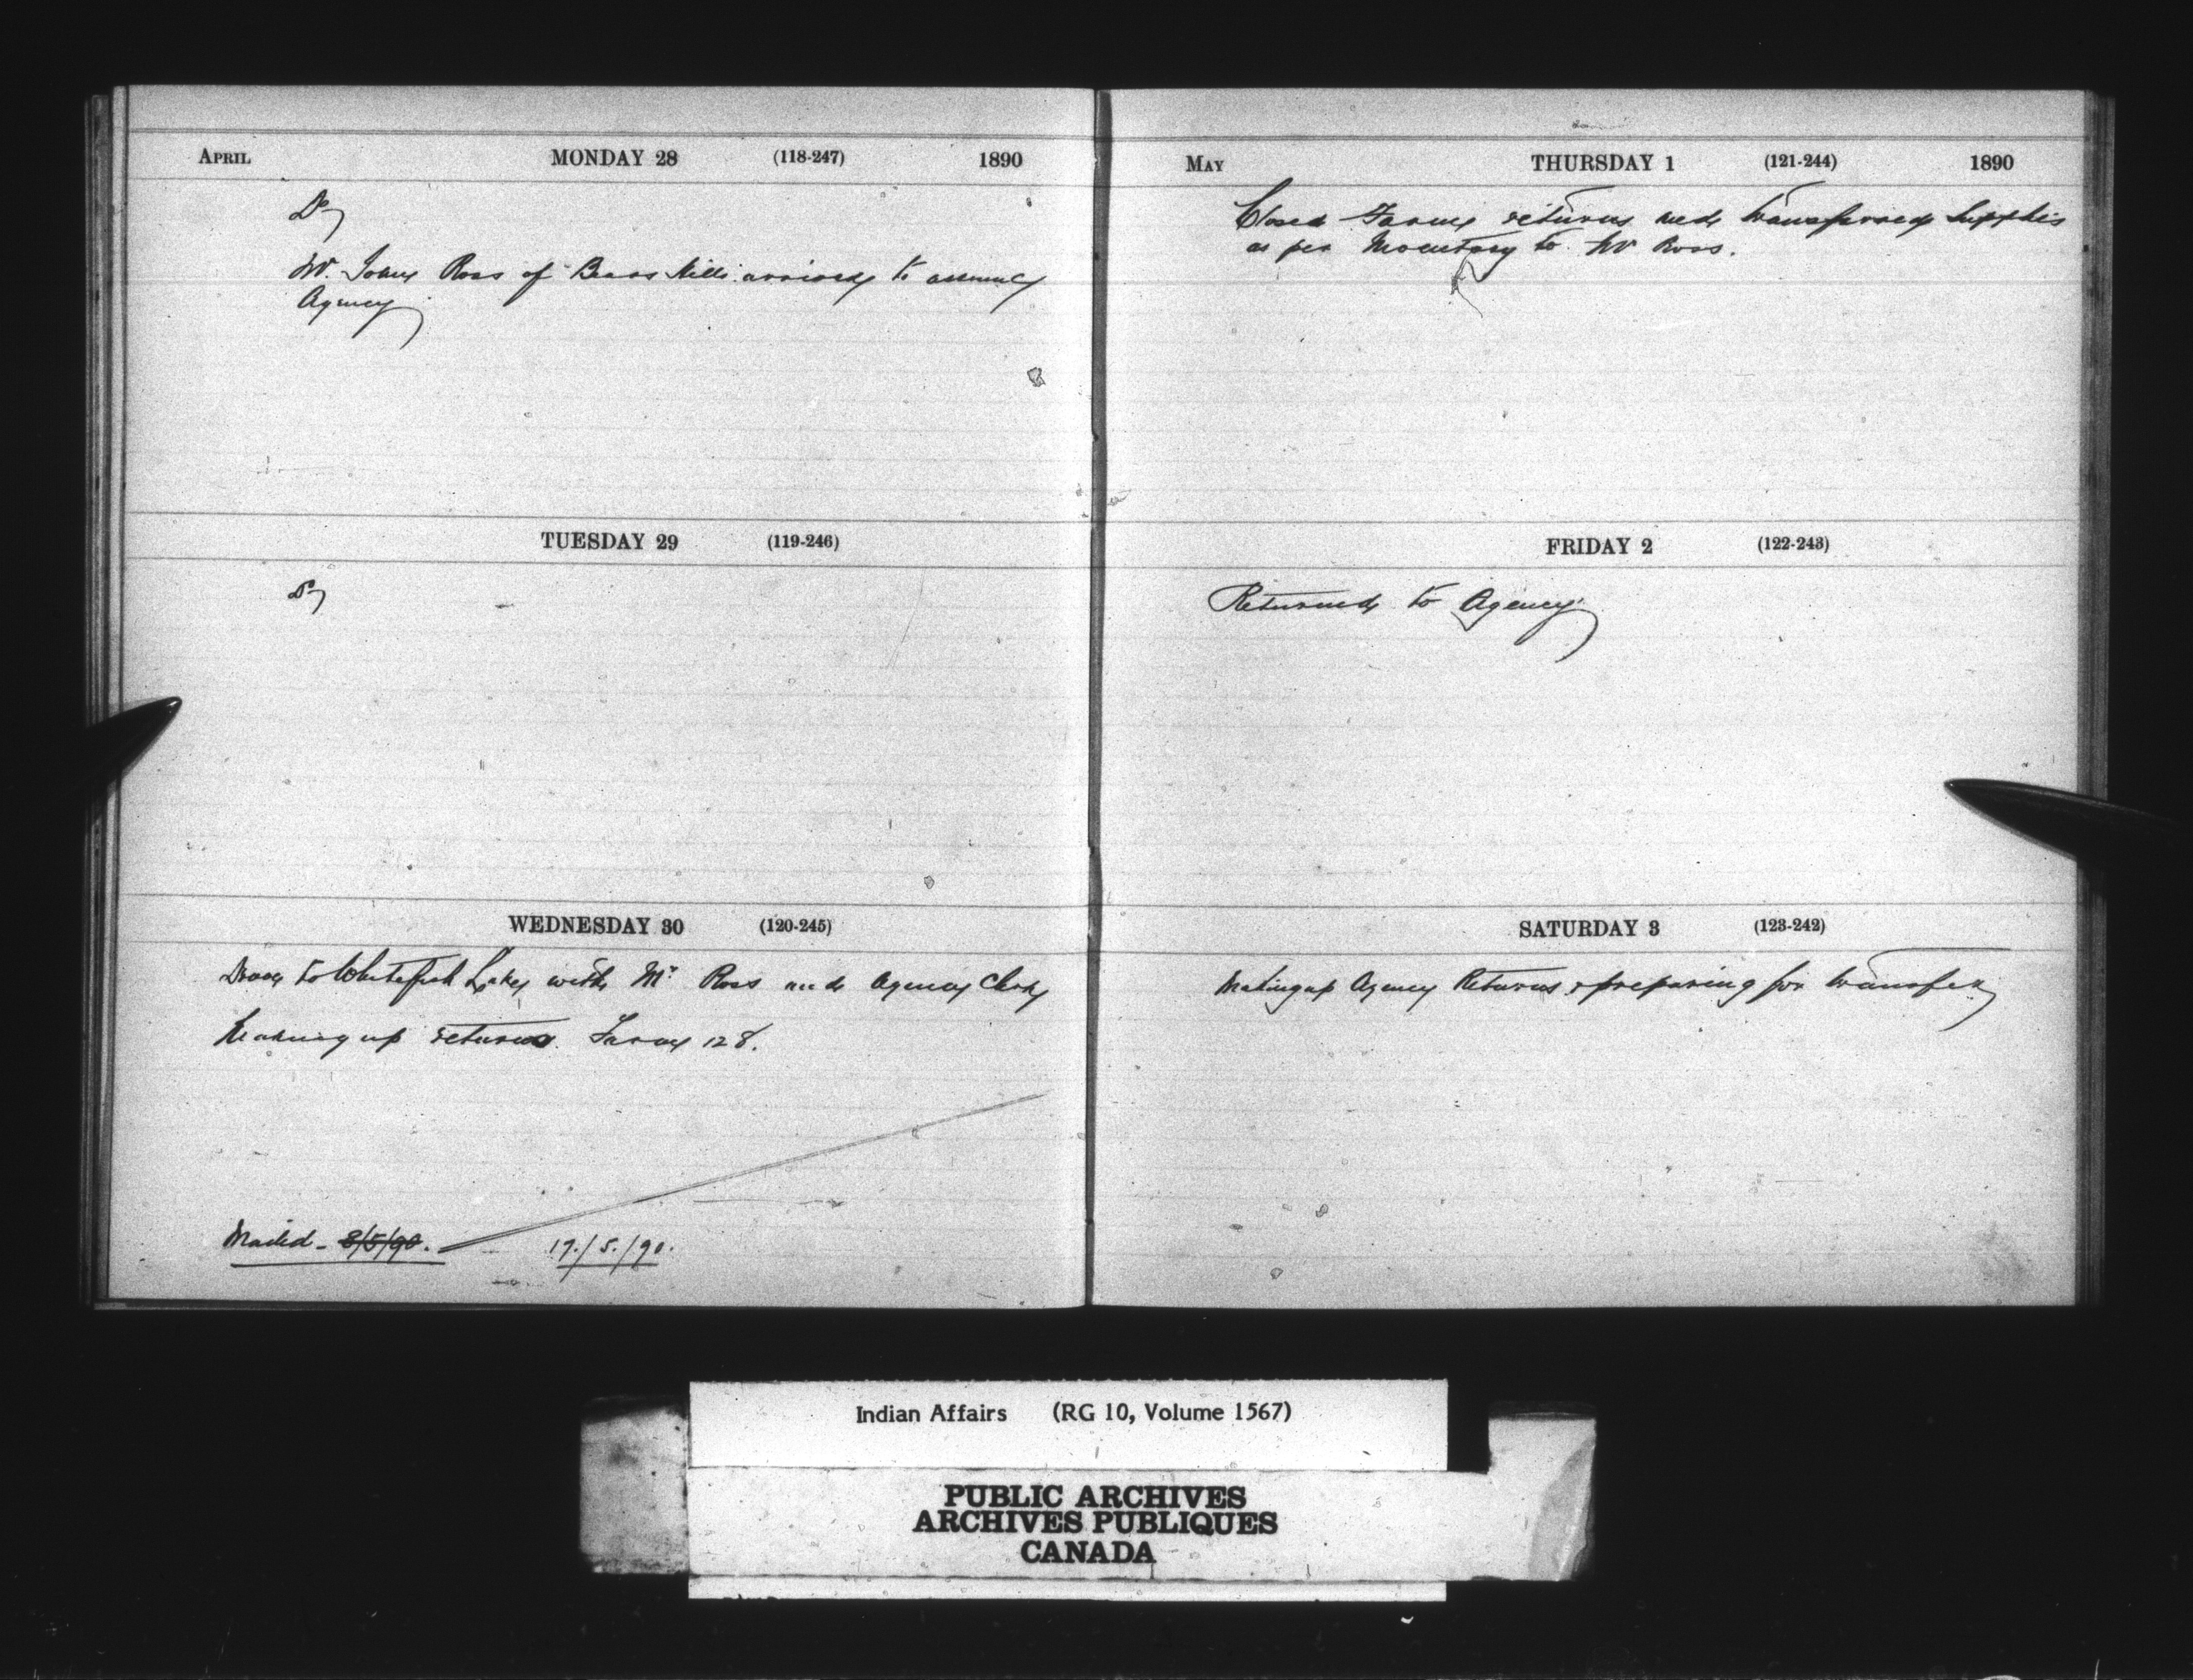 APRIL MONDAY 28 (118-247) 1890
Do
Mr. John Ross of Bears Hills arrived to assume
Agency
TUESDAY 29 (119-246)
Do
WEDNESDAY 30 (120-245)
Drove to Whitefish Lake with Mr Ross and Agency Clerk
Making up returns Farm 128.
Mailed - 8/5/90. 19./5./90.
MAY THURSDAY 1 (121-244) 1890
Closed Farm returns and transferred Supplies
as per Inventory to Mr Ross.
FRIDAY 2 (122-243)
Returned to Agency
SATURDAY 3 (123-242)
Making up Agency Returns & preparing for transfer
Indian Affairs (RG 10, Volume 1567)
PUBLIC ARCHIVES
ARCHIVES PUBLIQUES
CANADA